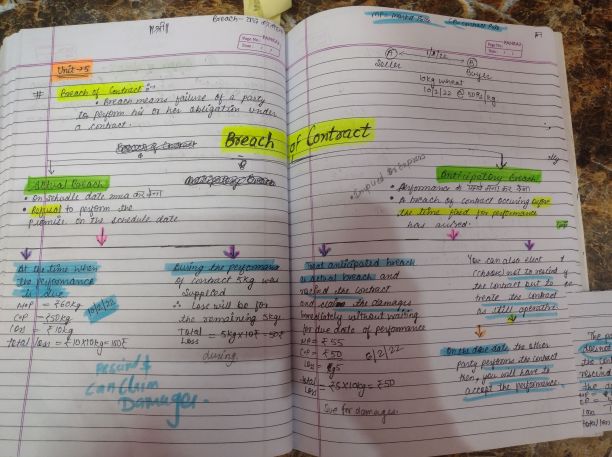 ॥श्री॥
Breach- वादा
Page No.
Date
Unit → 5
# Breach of Contract :-
• Breach means failure of a party
to perform his or her obligation under
a contract.
MP= Market Price
CP= Contract Price
Page No.
Date
(A) ← 1/2/22 → (B)
Seller Buyer
10kg wheat
10/2/22 @ 50₹/kg
Breach of Contract
Breach of Contract
Actual Breach
Anticipatory Breach
• On schedule date मना कर देना
• Refusal to perform the
promise on the schedule date
• Implied or Express
Anticipatory Breach
• Performance से पहले मना कर देना
• A breach of contract occuring before
the time fixed for performance
has arrived.
At the time when
the performance
is due
10/2/22
MP = ₹60kg
CP = ₹50kg
Loss = ₹10kg
Total loss = ₹10×10kg = 100₹
Rescind &
can claim
Damages.
During the performance
of contract 5kg was
supplied
∴ Loss will be for
the remaining 5kg
Total Loss = 5kg×10₹ = 50₹
during
Treat anticipated breach
as actual breach and
rescind the contract
and claim the damages
immediately without waiting
for due date of performance
MP = ₹55
CP = ₹50
6/2/22
Loss = ₹5
Total Loss = ₹5×10kg = ₹50
Sue for damages
You can also elect
(choose) not to rescind
the contract but to
treate the contract
as still operative
On the due date the other
party performs the contract
then, you will have to
accept the performance.